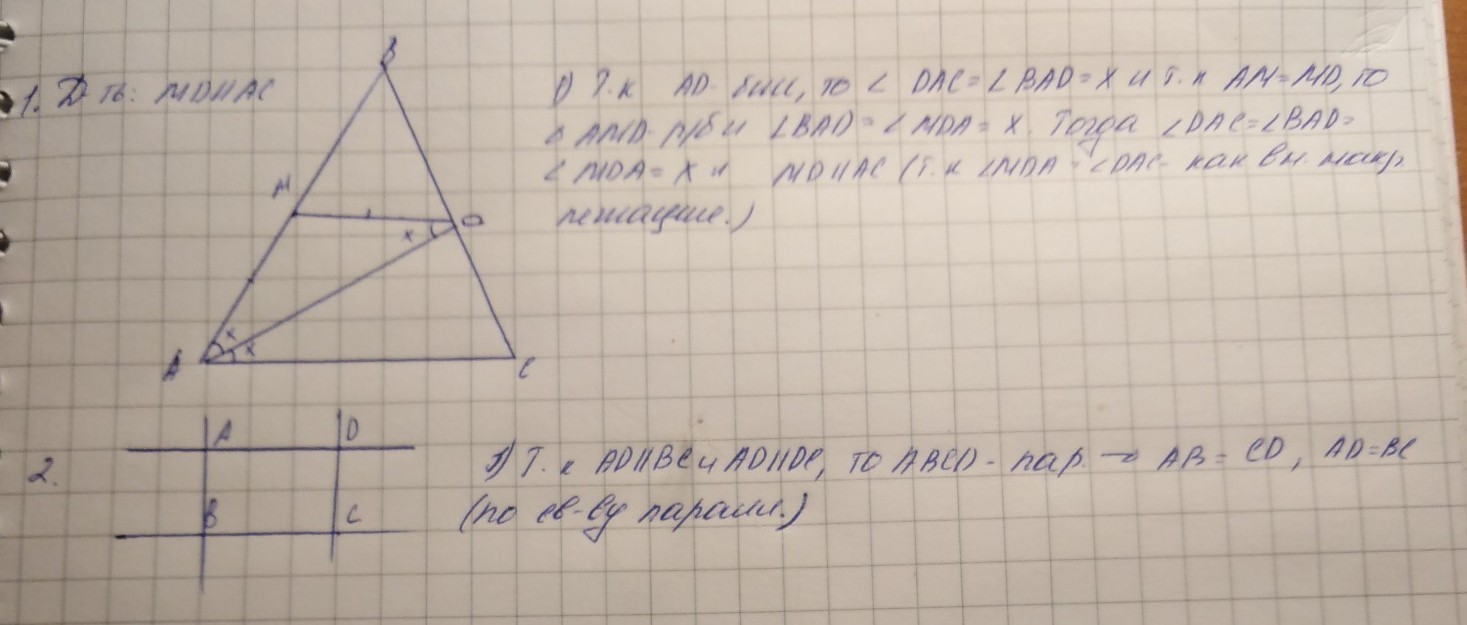 1. Д-ть: MD||AC
B
M
D
x
x
x
A
C
1) Т.к AD- бис, то ∠ DAC = ∠ BAD = X и т.к AM = MD, то
△ AMD- р/б и ∠BAD = ∠ MDA = X. Тогда ∠DAC = ∠BAD =
∠ MDA = X и MD||AC (т.к ∠MDA = ∠DAC- как вн. накр.
лежащие.)
2.
A D
B C
1) Т.к AD||BC и AD||DC, то ABCD - пар. → AB = CD, AD = BC
(по св-ву паралл.)